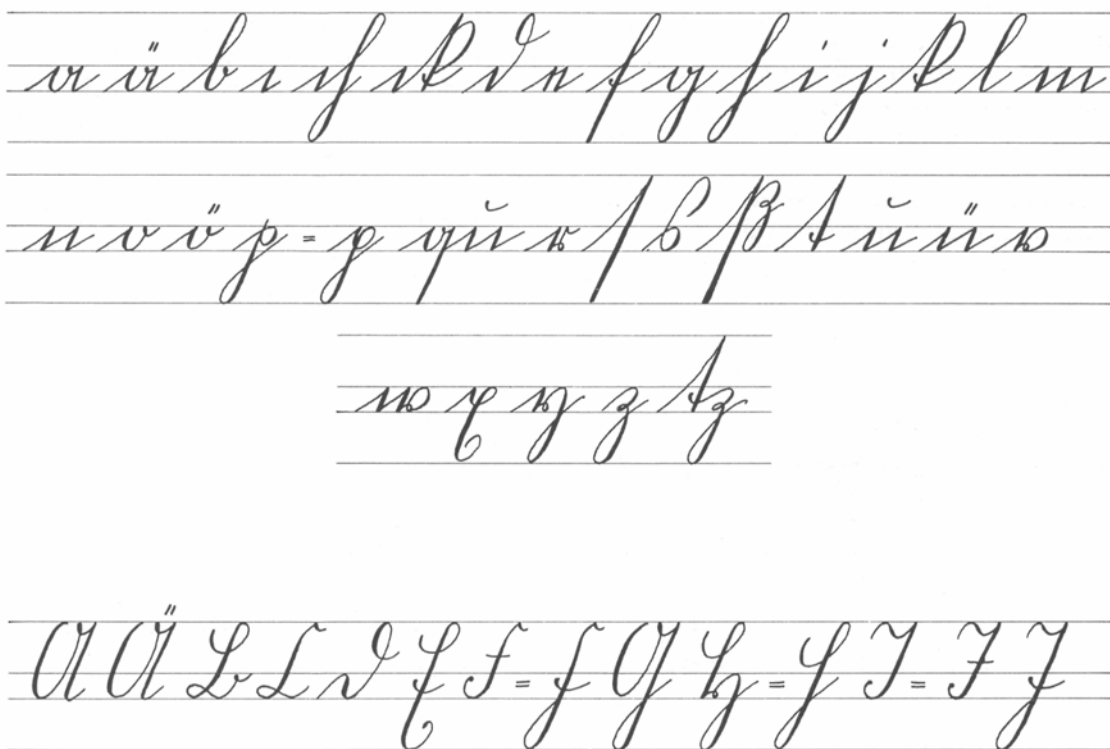 a ä b c ch ck d e f g h i j k l m
n o ö p = p qu r ſ s ß t u ü v
w x y z tz
A Ä B C D E F = F G H = H I = I J